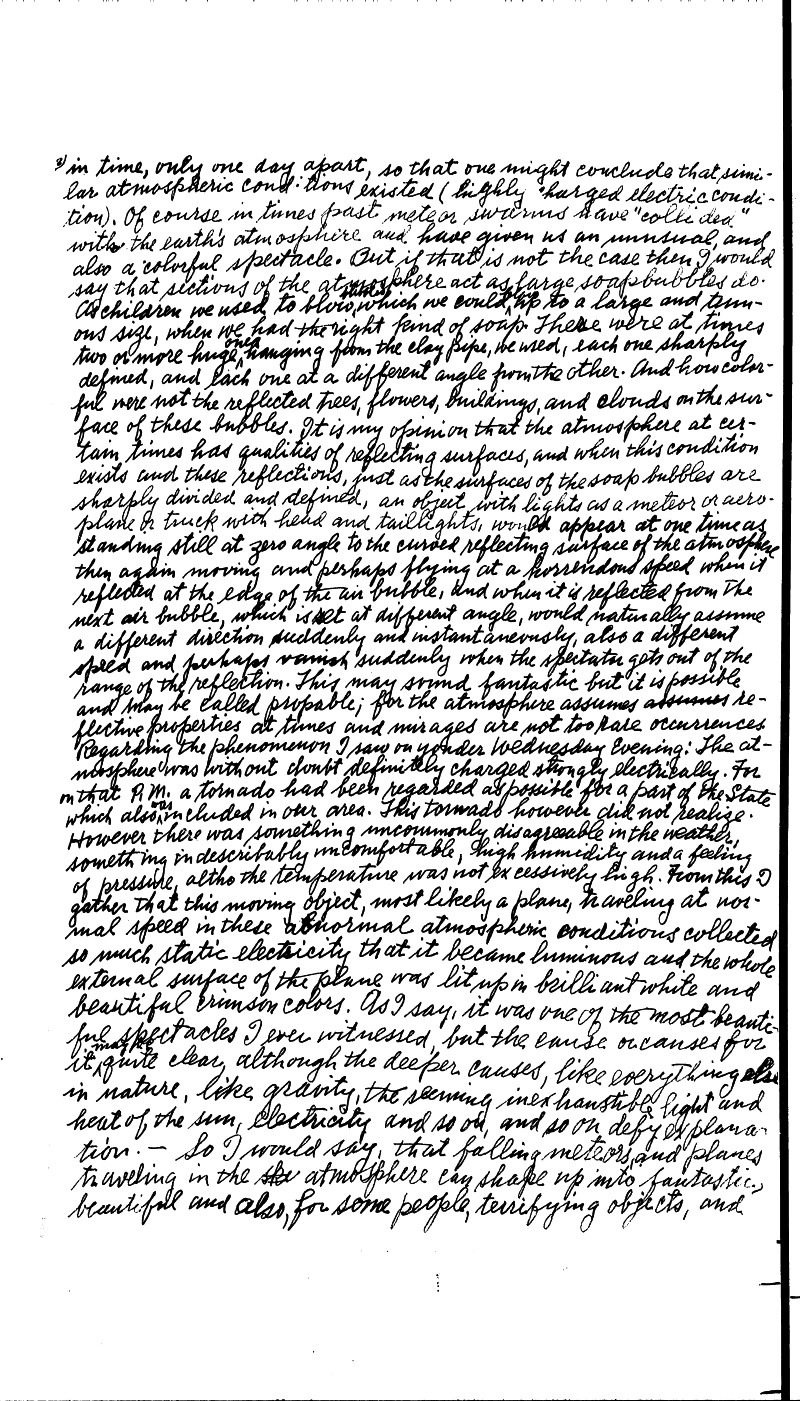 3) in time, only one day apart, so that one might conclude that simi-
lar atmospheric conditions existed (highly charged electric condi-
tion). Of course in times past meteor swarms have "collided"
with the earth's atmosphere and have given us an unusual, and
also a colorful spectacle. But if that is not the case then I would
say that sections of the atmosphere act as large soapbubbles do.
As children we used to blow, which we could, up to a large and tenu-
ous size, when we had the right kind of soap. There were at times
two or more huge ones hanging from the clay pipe, we used, each one sharply
defined, and each one at a different angle from the other. And how color-
ful were not the reflected trees, flowers, buildings, and clouds on the sur-
face of these bubbles. It is my opinion that the atmosphere at cer-
tain times has qualities of reflecting surfaces, and when this condition
exists and these reflections, just as the surfaces of the soap bubbles are
sharply divided and defined, an object with lights as a meteor or aero-
plane or truck with head and taillights, would appear at one time as
standing still at zero angle to the curved reflecting surface of the atmosphere
then again moving and perhaps flying at a horrendous speed when it
reflected at the edge of the air bubble, and when it is reflected from the
next air bubble, which is set at different angle, would naturally assume
a different direction suddenly and instantaneously, also a different
speed and perhaps vanish suddenly when the spectator gets out of the
range of the reflection. This may sound fantastic but it is possible
and may be called propable; for the atmosphere assumes assumes re-
flective properties at times and mirages are not too rare occurrences
Regarding the phenomenon I saw on yonder Wednesday Evening: The at-
mosphere was without doubt definitely charged strongly electrically. For
on that P.M. a tornado had been regarded as possible for a part of the State
which also was included in our area. This tornado however did not realize.
However there was something uncommonly disagreeable in the weather,
something indescribably uncomfortable, high humidity and a feeling
of pressure, altho the temperature was not excessively high. From this I
gather that this moving object, most likely a plane, traveling at nor-
mal speed in these abnormal atmospheric conditions collected
so much static electricity that it became luminous and the whole
external surface of the plane was lit up in brilliant white and
beautiful crimson colors. As I say, it was one of the most beauti-
ful spectacles I ever witnessed, but the cause or causes for
it, may be quite clear, although the deeper causes, like everything else
in nature, like gravity, the seeming inexhaustible light and
heat of the sun, electricity and so on, and so on defy explana-
tion. — So I would say, that falling meteors, and planes
traveling in the atmosphere can shape up into fantastic,
beautiful and also, for some people, terrifying objects, and